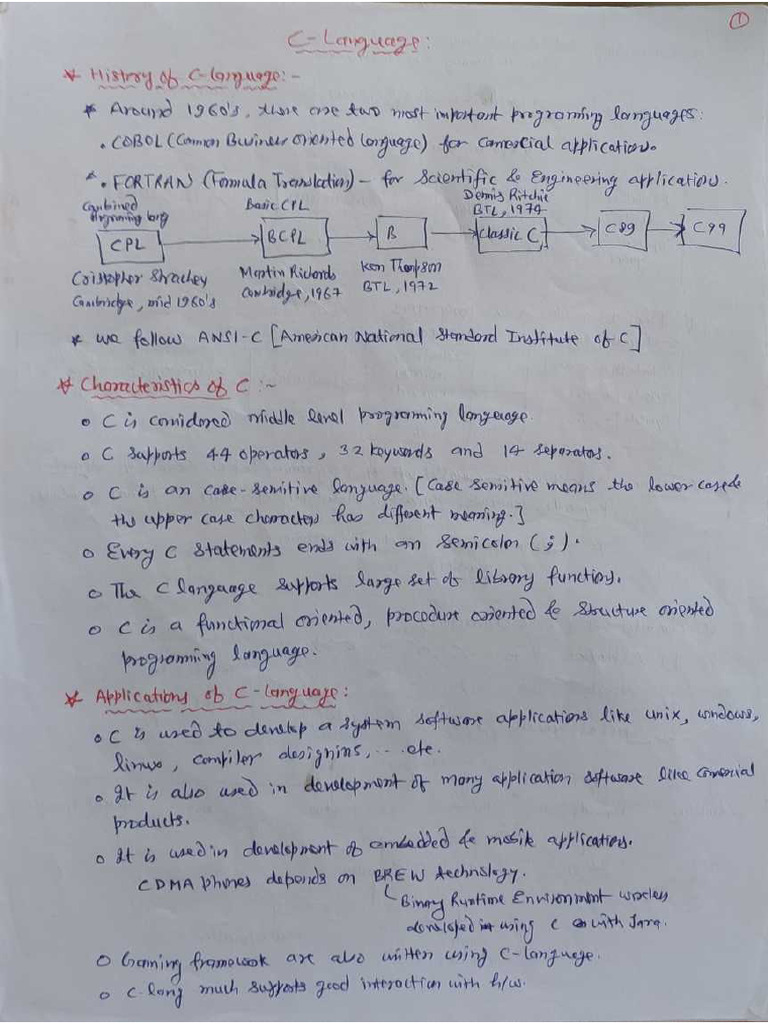 ①
C-Language:
* History of C-language:-
* Around 1960's, there are two most important programing languages:
. COBOL (Common Business oriented Language) for comercial application.
. FORTRAN (Formula Translation) - for Scientific & Engineering application.
Combined Programing lang
Basic CPL
Dennis Ritchie
BTL, 1974
CPL → BCPL → B → Classic C → C89 → C99
Cristopher Strachey
Cambridge, mid 1960's
Martin Richards
Cambridge, 1967
Ken Thompson
BTL, 1972
* we follow ANSI-C [American National Standard Institute of C]
* Characteristics of C :-
o C is considered middle level programming language.
o C supports 44 operators, 32 keywords and 14 separators.
o C is an case-sensitive language. [Case sensitive means the lower case &
the upper case characters has different meaning.]
o Every C statements ends with an semicolon (;).
o The C language supports large set of library functions.
o C is a functional oriented, procedure oriented & structure oriented
programming language.
* Applications of C-language:
o C is used to develop a system software applications like unix, windows,
linux, compiler designins, ... etc.
o It is also used in development of many application software like comercial
products.
o It is used in development of embedded & mobile applications.
CDMA phones depends on BREW technology.
Binary Runtime Environment wireless
developed in using C with Java.
o Gaming framework are also written using C-language.
o C lang much supports good interaction with h/w.